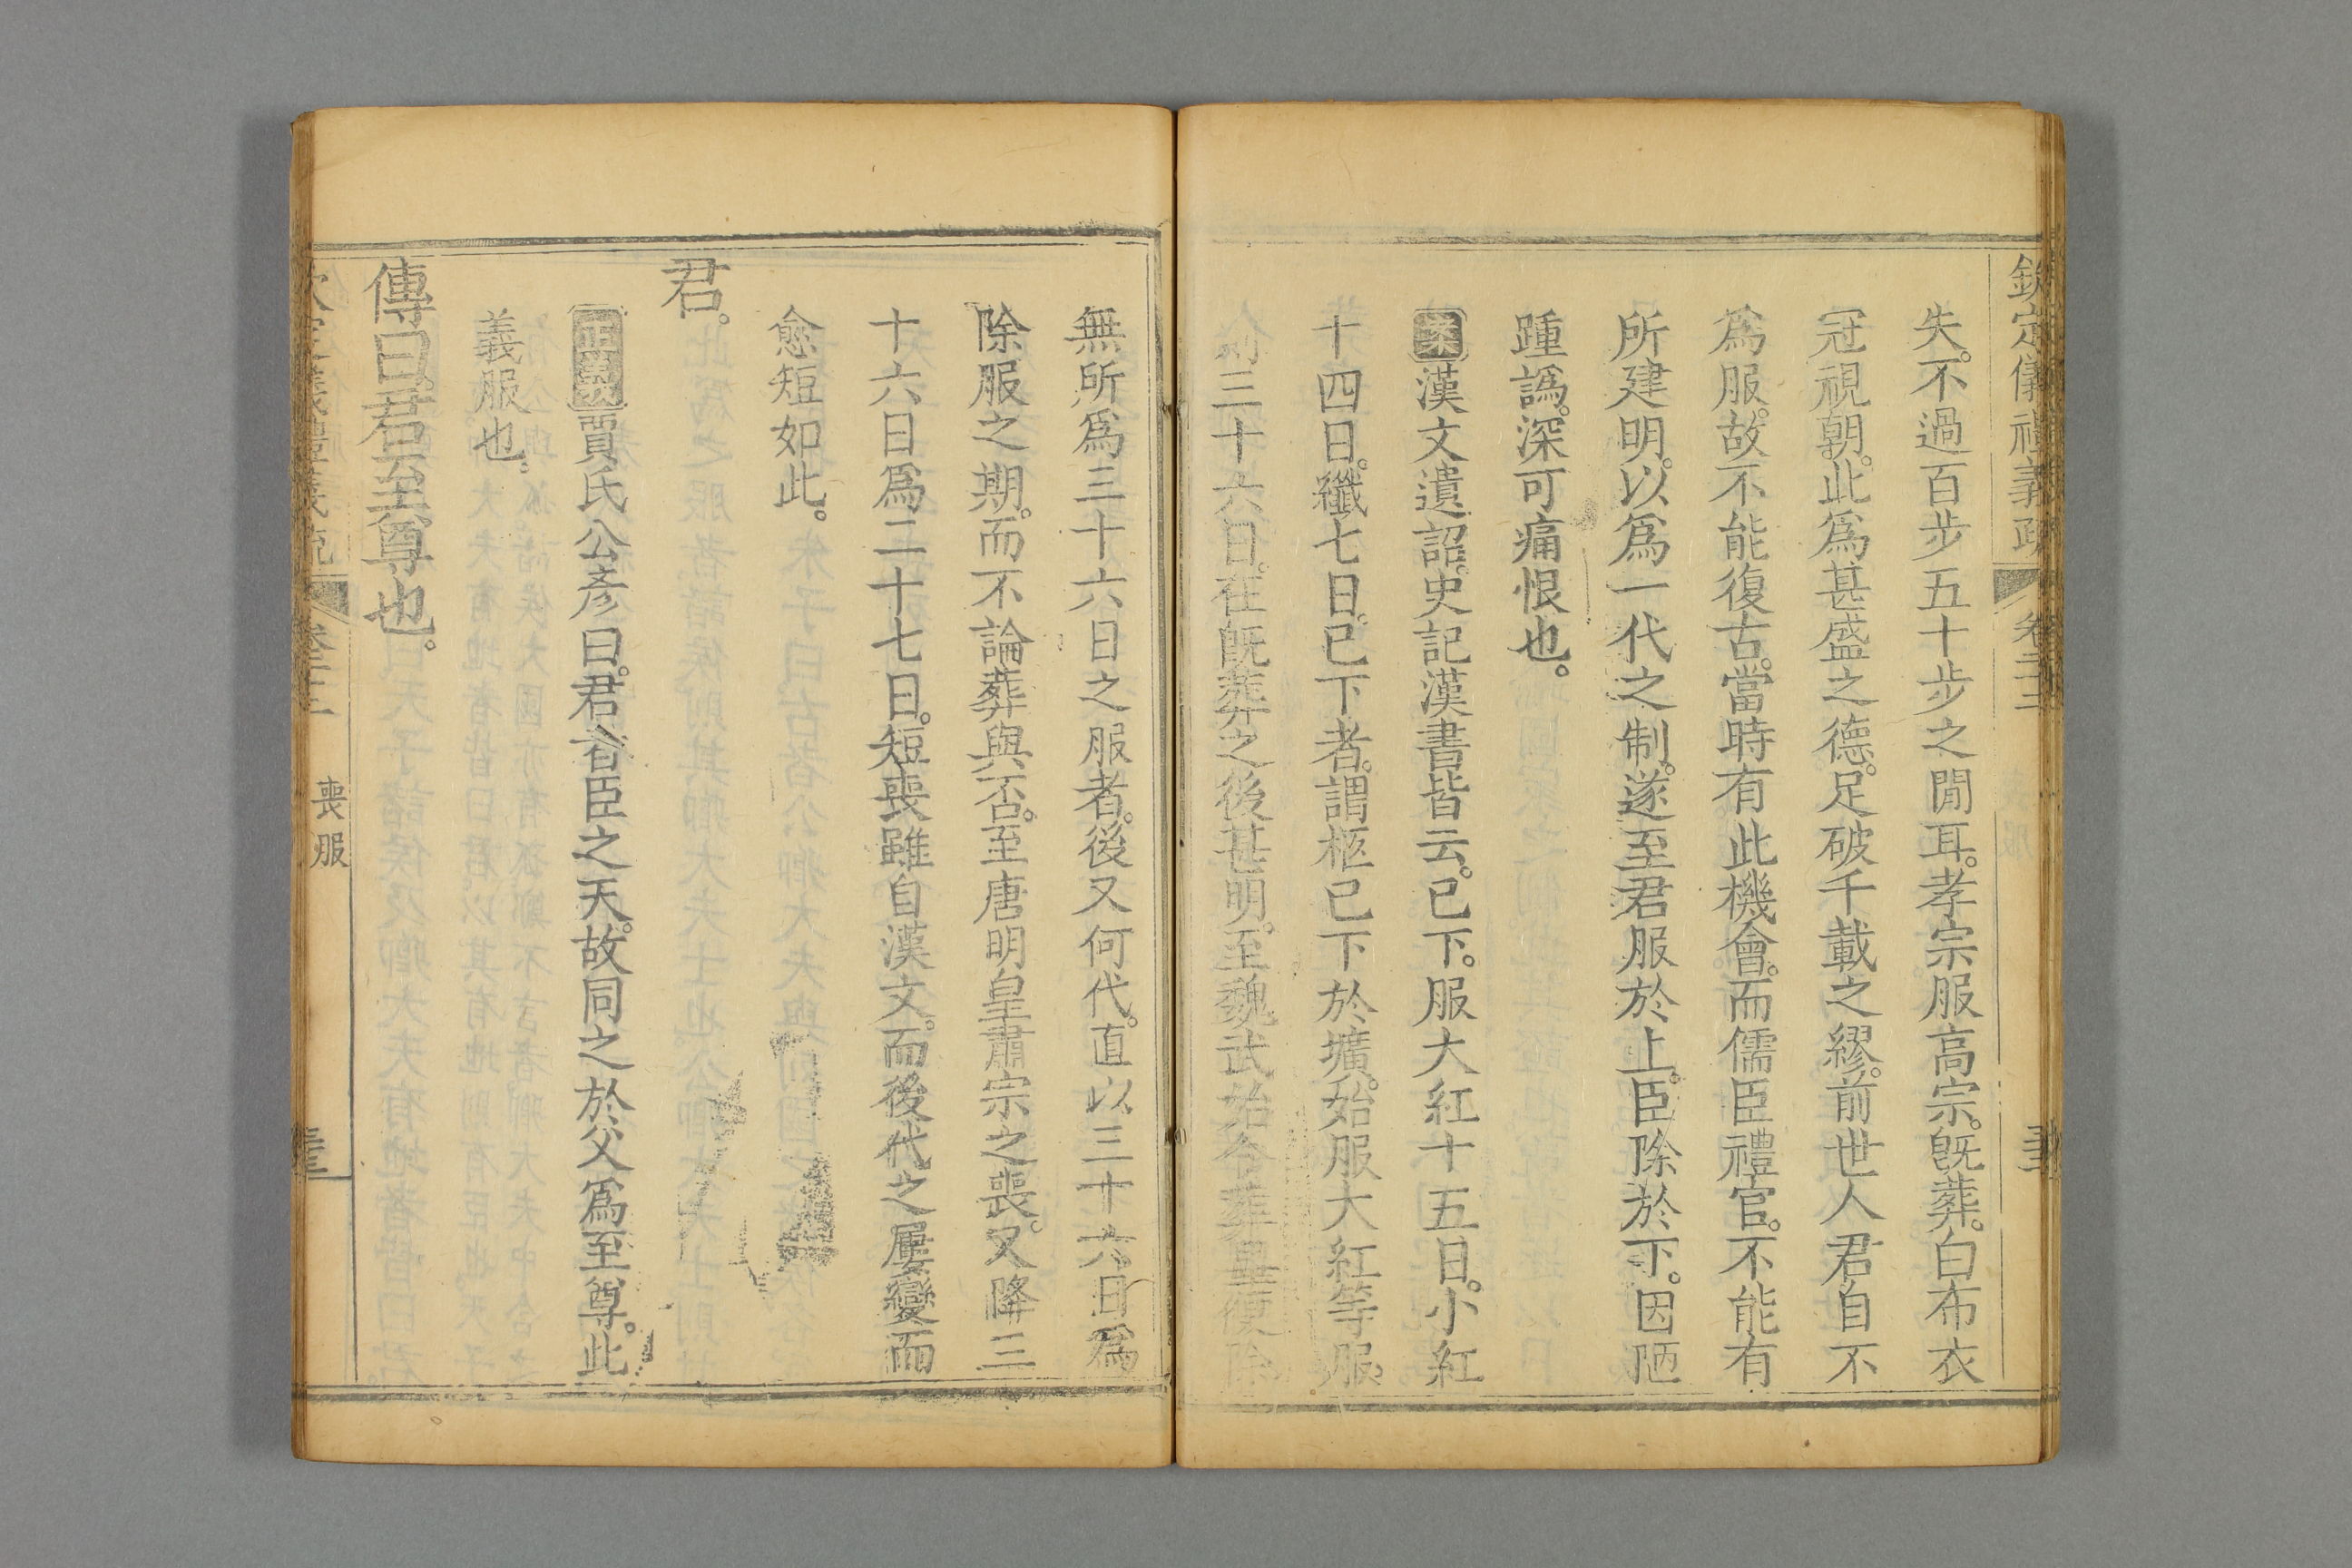 欽定儀禮義疏 卷二十三
失。不過百步五十步之閒耳。孝宗服高宗。旣葬。白布衣
冠視朝。此爲甚盛之德。足破千載之繆。前世人君自不
爲服。故不能復古。當時有此機會。而儒臣禮官。不能有
所建明。以爲一代之制。遂至君服於上。臣除於下。因陋
踵譌。深可痛恨也。
案漢文遺詔。史記漢書皆云。已下。服大紅十五日。小紅
十四日。纖七日。已下者。謂柩已下於壙。始服大紅等服。
三十六日。在旣葬之後甚明。至魏武始令葬畢便除
無所爲三十六日之服者。後又何代。直以三十六日爲
除服之期。而不論葬與否。至唐明皇肅宗之喪。又降三
十六日爲二十七日。短喪雖自漢文。而後代之屢變而
愈短如此。
君。
正義賈氏公彥曰。君者臣之天。故同之於父爲至尊。此
義服也。
傳曰。君至尊也。
喪服